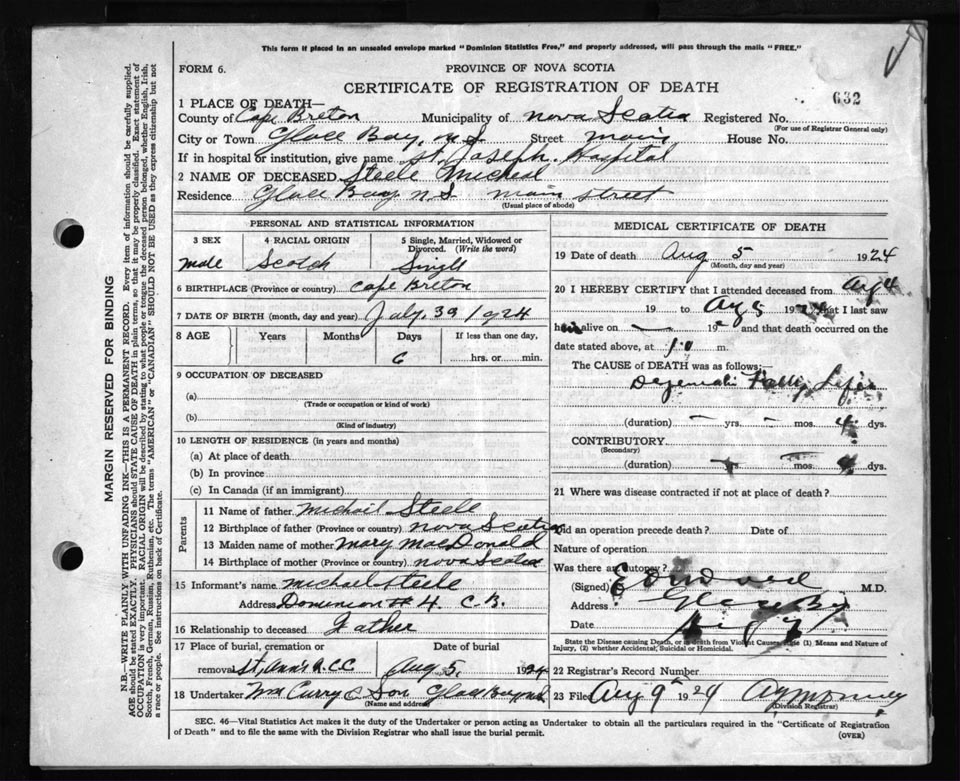 This form if placed in an unsealed envelope marked "Dominion Statistics Free," and properly addressed, will pass through the mails "FREE."
FORM 6.
PROVINCE OF NOVA SCOTIA
CERTIFICATE OF REGISTRATION OF DEATH
632
1 PLACE OF DEATH—
County of Cape Breton Municipality of Nova Scotia Registered No.
(For use of Registrar General only)
City or Town Glace Bay, N.S. Street Main House No.
If in hospital or institution, give name St. Joseph. Hospital
2 NAME OF DECEASED. Steele Micheal
Residence Glace Bay N.S main street
(Usual place of abode)
PERSONAL AND STATISTICAL INFORMATION
3 SEX 4 RACIAL ORIGIN 5 Single, Married, Widowed or Divorced. (Write the word)
male Scotch Single
6 BIRTHPLACE (Province or country) Cape Breton
7 DATE OF BIRTH (month, day and year) July. 30 1924
8 AGE Years Months Days If less than one day,
6 hrs. or min.
9 OCCUPATION OF DECEASED
(a)
(Trade or occupation or kind of work)
(b)
(Kind of industry)
10 LENGTH OF RESIDENCE (in years and months)
(a) At place of death
(b) In province
(c) In Canada (if an immigrant)
Parents
11 Name of father Michael Steele
12 Birthplace of father (Province or country) Nova Scotia
13 Maiden name of mother Mary MacDonald
14 Birthplace of mother (Province or country) Nova Scotia
15 Informant's name Michael Steele
Address Dominion # 4. C.B.
16 Relationship to deceased Father
17 Place of burial, cremation or Date of burial
removal St. Anns R.C.C Aug 5. 1924
18 Undertaker Wm Curry & Son Glace Bay
(Name and address)
MEDICAL CERTIFICATE OF DEATH
19 Date of death Aug 5 1924
(Month, day and year)
20 I HEREBY CERTIFY that I attended deceased from Aug 4
19 to Aug 5 192 that I last saw
h alive on — 19 and that death occurred on
date stated above, at m.
The CAUSE of DEATH was as follows:
(duration) – yrs. – mos. 4 dys.
CONTRIBUTORY
(Secondary)
(duration) yrs. mos. dys.
21 Where was disease contracted if not at place of death?
Did an operation precede death? Date of
Nature of operation
Was there an autopsy?
(Signed) Edward M.D.
Address Glace Bay
Date
State the Disease causing Death, or in death from Violent Causes, state (1) Means and Nature of
Injury, (2) whether Accidental, Suicidal or Homicidal.
22 Registrar's Record Number
23 Filed Aug 9 1924
(Division Registrar)
SEC. 46—Vital Statistics Act makes it the duty of the Undertaker or person acting as Undertaker to obtain all the particulars required in the "Certificate of Registration
of Death" and to file the same with the Division Registrar who shall issue the burial permit.
(OVER)
MARGIN RESERVED FOR BINDING
N.B.—WRITE PLAINLY WITH UNFADING INK—THIS IS A PERMANENT RECORD. Every item of information should be carefully supplied.
AGE should be stated EXACTLY. PHYSICIANS should STATE CAUSE OF DEATH in plain terms, so that it may be properly classified. Exact statement of
OCCUPATION is very important. RACIAL ORIGIN will be described by stating to what people or tongue the deceased person belonged, whether English, Irish,
Scotch, French, German, Russian, Ruthenian, etc. The terms "AMERICAN" or "CANADIAN" SHOULD NOT BE USED as they express citizenship but not
a race or people. See instructions on back of Certificate.